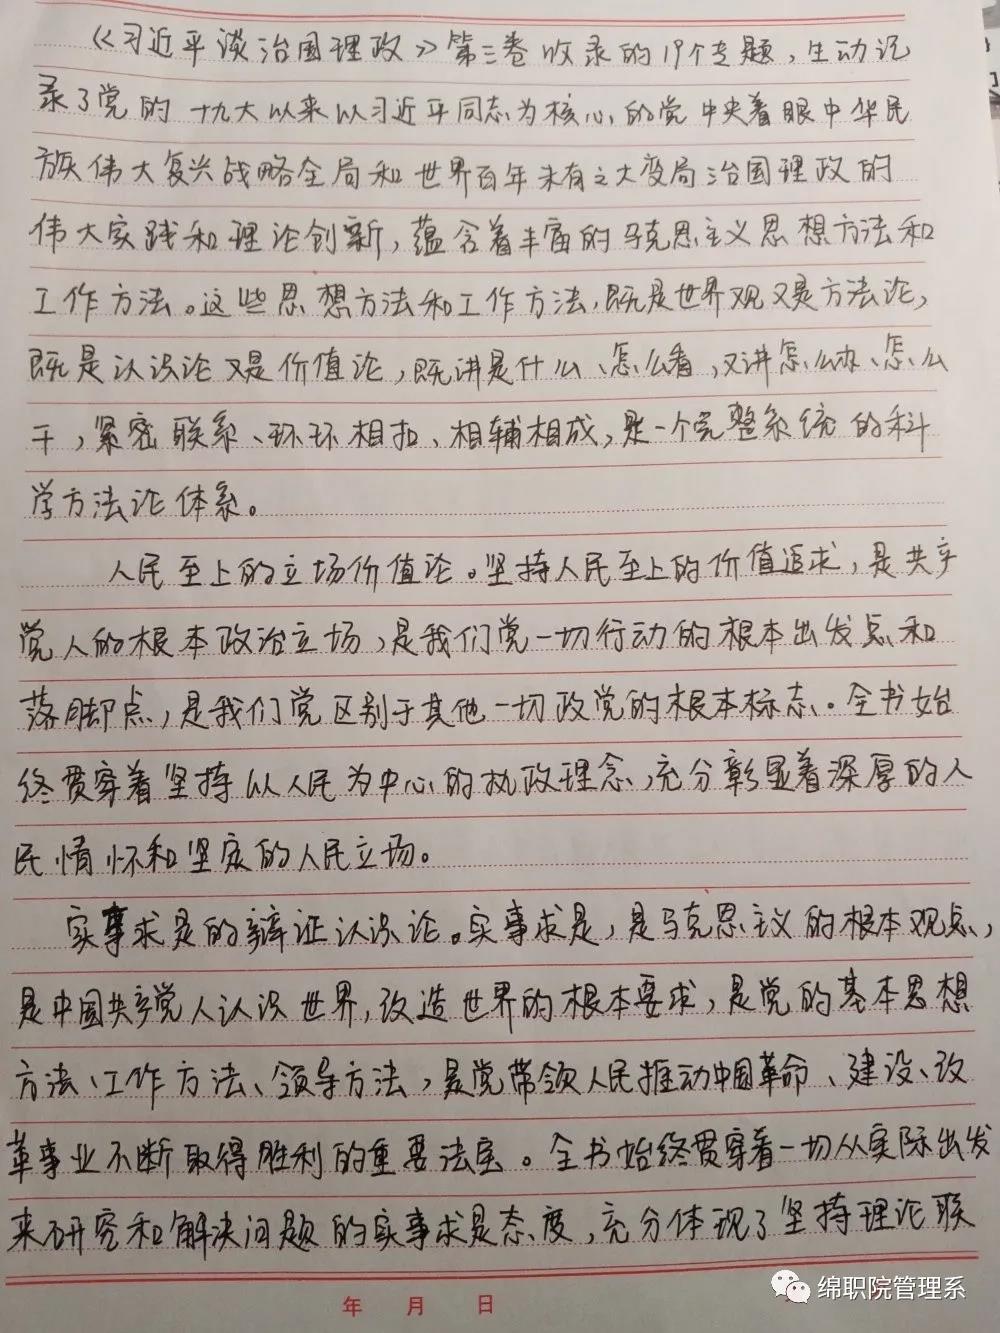 《习近平谈治国理政》第三卷收录的19个专题，生动记
录了党的十九大以来以习近平同志为核心的党中央着眼中华民
族伟大复兴战略全局和世界百年未有之大变局治国理政的
伟大实践和理论创新，蕴含着丰富的马克思主义思想方法和
工作方法。这些思想方法和工作方法，既是世界观又是方法论，
既是认识论又是价值论，既讲是什么、怎么看，又讲怎么办、怎么
干，紧密联系、环环相扣、相辅相成，是一个完整系统的科
学方法论体系。
人民至上的立场价值论。坚持人民至上的价值追求，是共产
党人的根本政治立场，是我们党一切行动的根本出发点和
落脚点，是我们党区别于其他一切政党的根本标志。全书始
终贯穿着坚持以人民为中心的执政理念，充分彰显着深厚的人
民情怀和坚定的人民立场。
实事求是的辩证认识论。实事求是，是马克思主义的根本观点，
是中国共产党人认识世界，改造世界的根本要求，是党的基本思想
方法、工作方法、领导方法，是党带领人民推动中国革命、建设、改
革事业不断取得胜利的重要法宝。全书始终贯穿着一切从实际出发
来研究和解决问题的实事求是态度，充分体现了坚持理论联
年 月 日
绵职院管理系